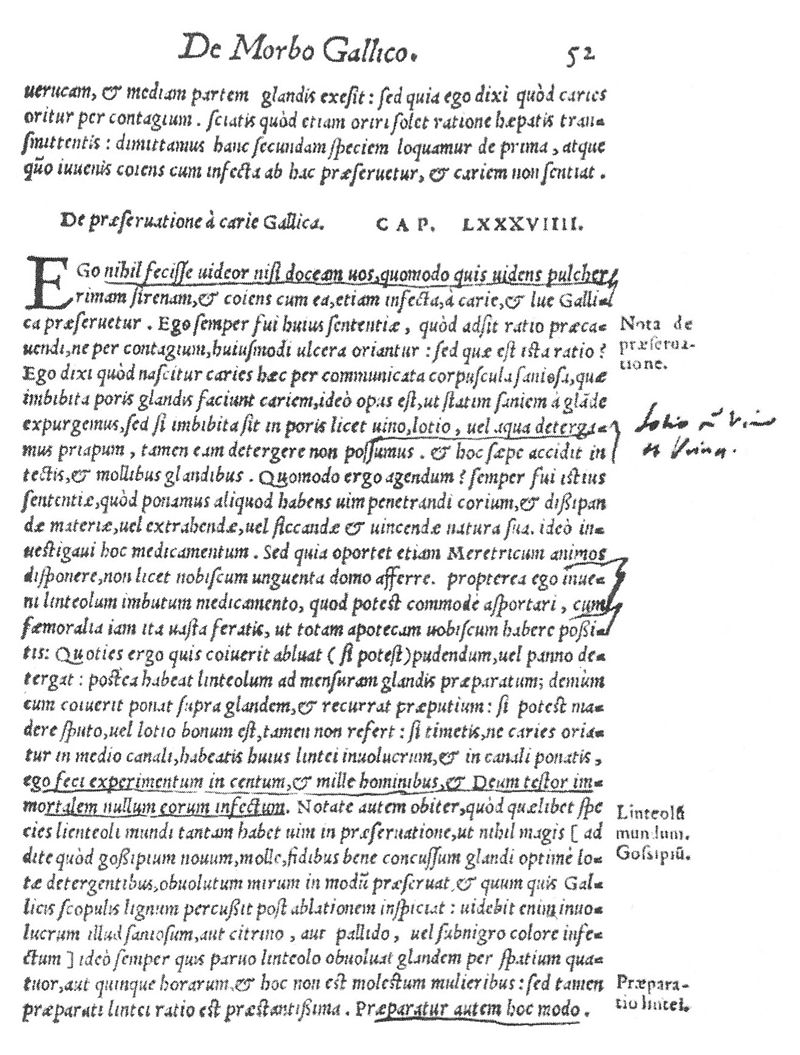 De Morbo Gallico. 52
uerucam, & mediam partem glandis exesit: sed quia ego dixi quòd caries
oritur per contagium. sciatis quòd etiam oriri solet ratione hæpatis trans-
smittentis: dimittamus hanc secundam speciem loquamur de prima, atque
quõ iuuenis coiens cum infecta ab hac præseruetur, & cariem non sentiat.
De præseruatione à carie Gallica. CAP. LXXXVIIII.
EGo nihil fecisse uideor nisi doceam uos, quomodo quis uidens pulcher
rimam sirenam, & coiens cum ea, etiam infecta, à carie, & lue Galli-
ca præseruetur. Ego semper fui huius sententiæ, quòd adsit ratio præca-
uendi, ne per contagium, huiusmodi ulcera oriantur: sed quæ est ista ratio?
Nota de
præserua-
tione.
Ego dixi quòd nascitur caries hæc per communicata corpuscula saniosa, quæ
imbibita poris glandis faciunt cariem, ideò opus est, ut statim saniem à glãde
expurgemus, sed si imbibita sit in poris licet uino, lotio, uel aqua deterga-
mus priapum, tamen eam detergere non possumus. & hoc sæpe accidit in
tectis, & mollibus glandibus. Quomodo ergo agendum? semper fui istius
sententiæ, quòd ponamus aliquod habens uim penetrandi corium, & dissipan
dæ materiæ, uel extrahendæ, uel siccandæ & uincendæ natura sua. ideò in-
uestigaui hoc medicamentum. Sed quia oportet etiam Meretricum animos
disponere, non licet nobiscum unguenta domo afferre. propterea ego inue-
ni linteolum imbutum medicamento, quod potest commodè asportari, cum
fæmoralia iam ita uasta feratis, ut totam apotecam uobiscum habere possi-
tis: Quoties ergo quis coiuerit abluat (si potest) pudendum, uel panno de-
tergat: postea habeat linteolum ad mensuram glandis præparatum; demùm
cum coiuerit ponat supra glandem, & recurrat præputium: si potest ma-
dere sputo, uel lotio bonum est, tamen non refert: si timetis, ne caries oria-
tur in medio canali, habeatis huius lintei inuolucrum, & in canali ponatis,
ego feci experimentum in centum, & mille hominibus, & Deum testor im-
mortalem nullum eorum infectum. Notate autem obiter, quòd quælibet spe
cies lienteoli mundi tantam habet uim in præseruatione, ut nihil magis [ ad
dite quòd gossipium nouum, molle, fidibus bene concussum glandi optimè lo-
Linteolũ
mundum.
Gossipiũ.
tæ detergentibus, obuolutum mirum in modũ præseruat & quum quis Gal-
licis scopulis lignum percussit post ablationem inspiciat: uidebit enim inuo-
lucrum illud saniosum, aut citrino, aut pallido, uel subnigro colore infe-
ctum ] ideò semper quis paruo linteolo obuoluat glandem per spatium qua-
tuor, aut quinque horarum, & hoc non est molestum mulieribus: sed tamen
præparati lintei ratio est præstantissima. Præparatur autem hoc modo.
Præpara-
tio lintei.